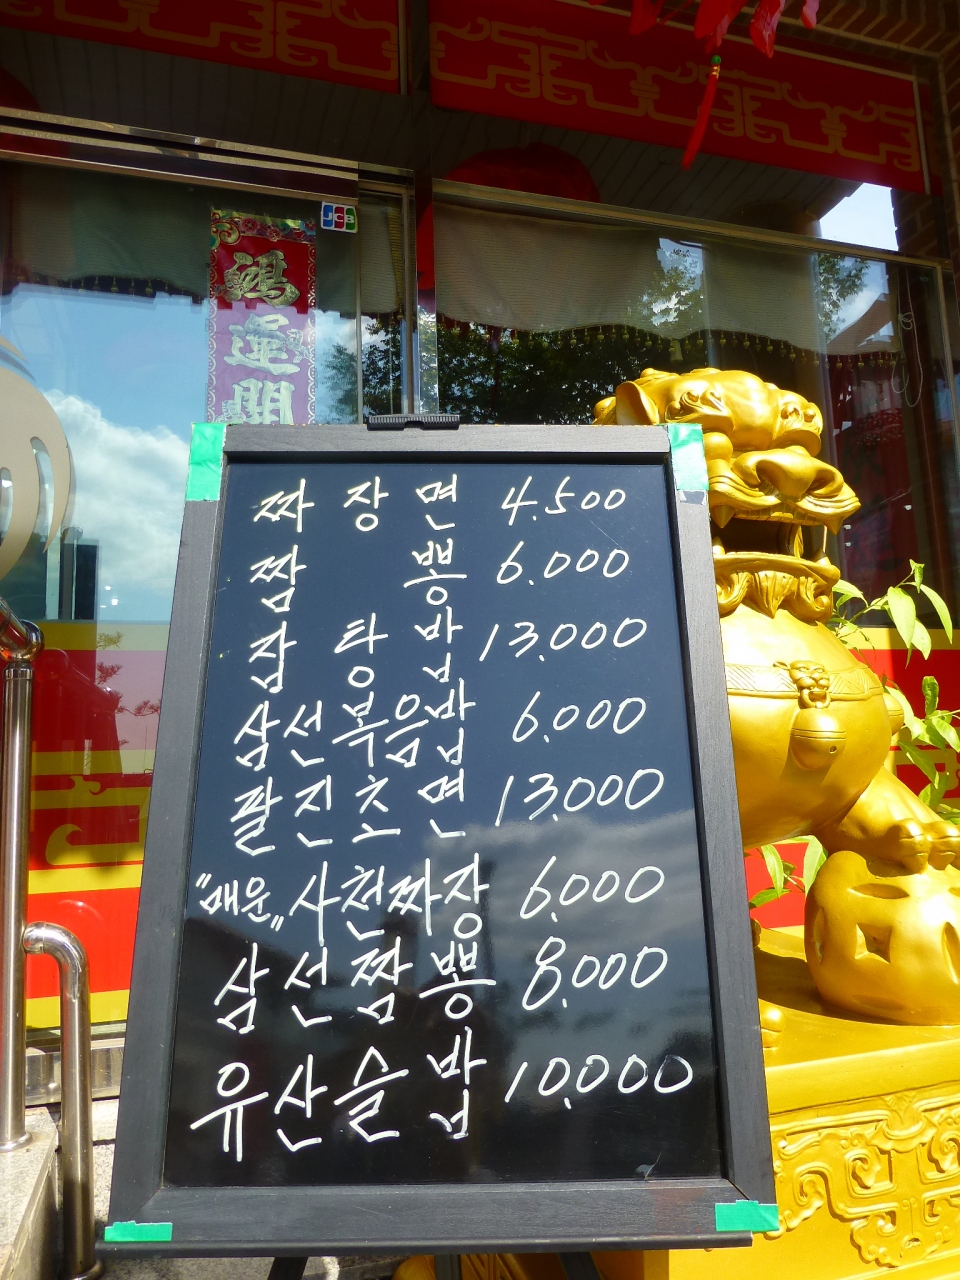 JCB
鴻
運
開
짜장면 4.500
짬뽕 6.000
잡탕밥 13.000
삼선볶음밥 6.000
팔진초면 13.000
"매운" 사천짜장 6.000
삼선짬뽕 8.000
유산슬밥 10.000